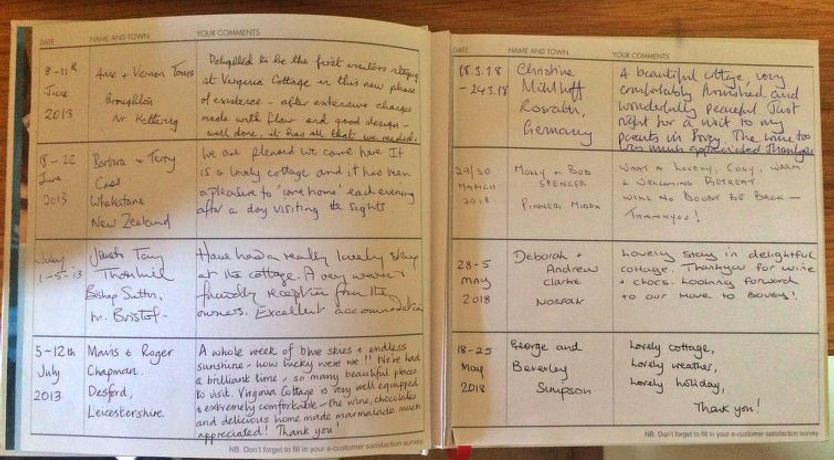 DATE NAME AND TOWN YOUR COMMENTS
8-11th June 2013
Ann + Vernon
Broughton
Nr Kettering
Delighted to be the first visitors staying
at Virginia Cottage in this new phase
of existence - after extensive changes
made with flair and good design -
well done, it has all that we needed.
18-22 June 2013
Barbara + Terry
Whakatane
New Zealand
We are pleased we came here It
is a lovely cottage and it has been
a pleasure to 'come home' each evening
after a day visiting the sights.
July 1-5-13
Thornhill
Bishop Sutton,
Nr. Bristol.
Have had a really lovely stay
at the cottage. A very warm +
friendly reception from the
owners. Excellent accommodation
5-12th July 2013
Mavis & Roger
Chapman.
Desford,
Leicestershire.
A whole week of blue skies & endless
sunshine - how lucky were we!! We've had
a brilliant time, so many beautiful places
to visit. Virginia Cottage is very well equipped
& extremely comfortable - the wine, chocolates
and delicious home made marmalade much
appreciated! Thank you!
NB. Don't forget to fill in your e-customer satisfaction survey
DATE NAME AND TOWN YOUR COMMENTS
18.3.18 - 24.3.18
Christine
Rosrath,
Germany
A beautiful cottage, very
comfortably furnished and
wonderfully peaceful. Just
right for a visit to my
parents in Bovey. The wine too
was much appreciated Thankyou
29/30 MARCH 2018
MOLLY & BOB
SPENCER
PINNER, MIDDX
WHAT A LOVELY, COSY, WARM
& WELCOMING RETREAT.
WILL NO DOUBT BE BACK -
THANKYOU!
28-5 May 2018
Deborah +
Andrew
Clarke
Norfolk
Lovely stay in delightful
cottage. Thankyou for wine
+ chocs. Looking forward
to our move to Bovey!
18-25 May 2018
George and
Beverley
Simpson
Lovely cottage,
Lovely weather,
Lovely holiday,
Thank you!
NB. Don't forget to fill in your e-customer satisfaction survey